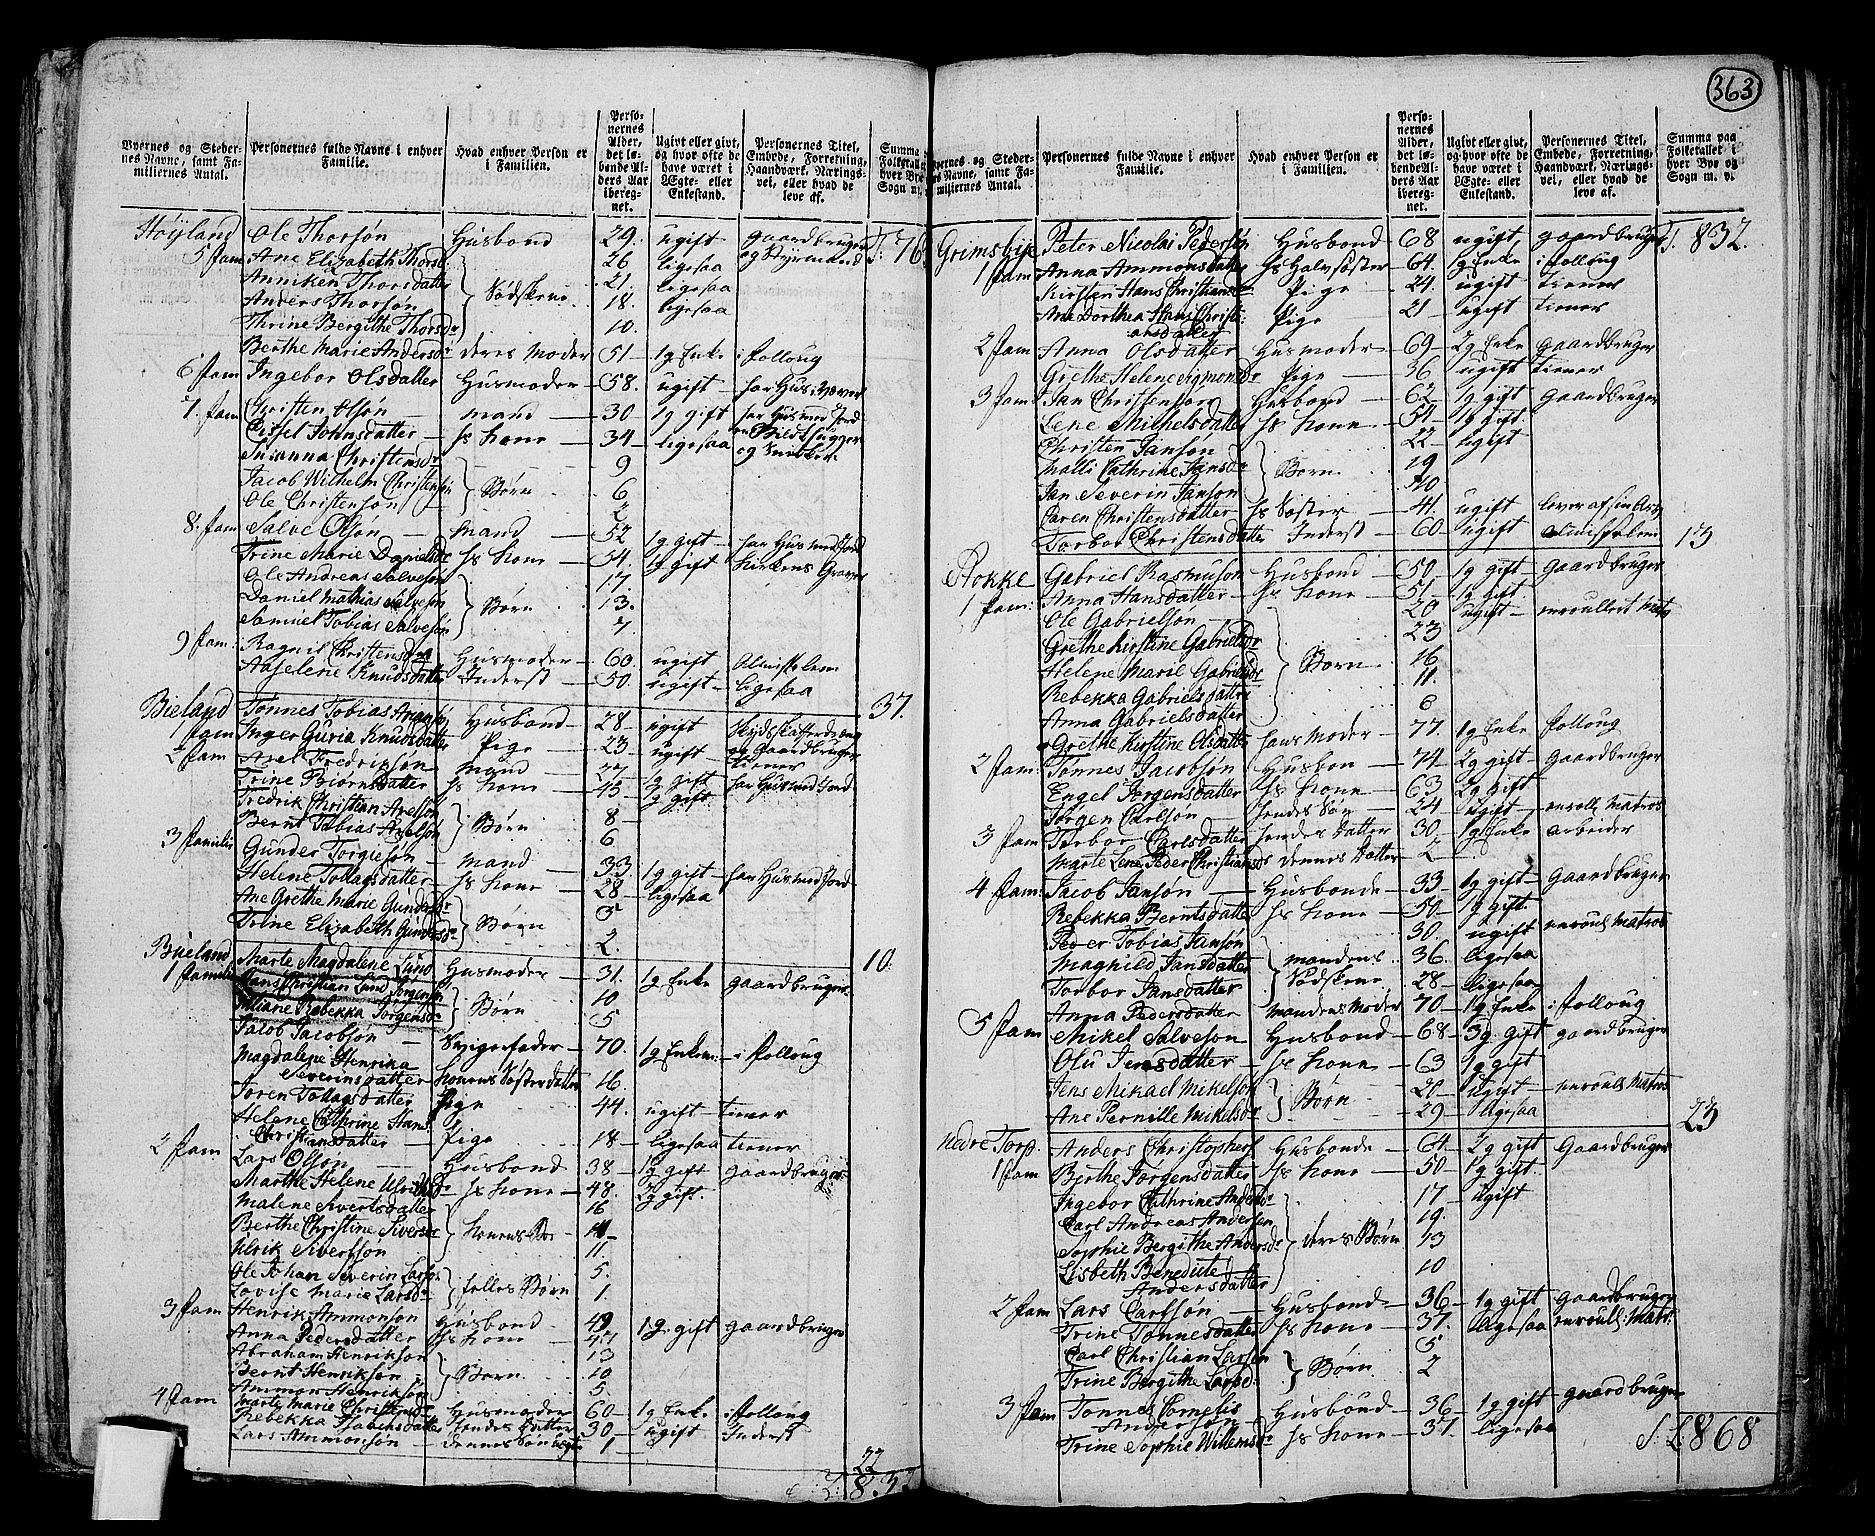 363
Byernes og Stedernes Navne, samt Familiernes Antal. | Personernes fulde Navne i enhver Familie. | Hvad enhver Person er i Familien. | Personernes Alder, det løbende Alders Aar iberegnet. | Ugivt eller givt, og hvor ofte de have været i Ægte- eller Enkestand. | Personernes Titel, Embede, Forretning, Haandværk, Næringsvei, eller hvad de leve af. | Summa Folketallet hver Bye Sogn m.
Høyland Ole Thorsøn Husbond 29. ugift gaardbruger T. 76
5 fam Ane Elizabeth Thorsd. 26 ligesaa og Styrmand
Anniken Thorsdatter Sødskene 21. ligesaa
Anders Thorsøn 18. ligesaa
Thrine Bergithe Thorsdr 10.
Berthe Marie Andersdr deres Moder 51 1g Enke i folloug
6 fam Ingebor Olsdatter Husmoder 58. ugift har Hus: Væver
7. fam Christen Olsøn mand 30 1g gift har Hus med Jord
Cissel Johnsdatter hs Kone 34 ligesaa Bildthugger og Snedker
Susanna Christensdr 9
Jacob Wilhelm Christensøn Børn 6
Ole Christensøn 2
8. fam Salve Olsøn mand 52 1g gift har Hus med Jord
Trine Marie Danielsdr hs Kone 54. 1g gift Kirkens Graver
Ole Andreas Salvesøn 17.
Daniel Mathias Salvesøn Børn 13.
Samuel Tobias Salvesøn 7
9 fam: Ragnil Christensdr Husmoder 60. ugift Almisselem
Aaselene Knudsdatter Inderst 50. ugift ligesaa 37.
Bieland Tønnes Tobias Husbond 28 ugift Skydskafferdreng
1 fam Inger Guria Knudsdatter Pige 23 ugift og Gaardbruger
2 fam Axel Fredriksøn mand 27 1g gift tiener
Trine Biørnsdatter hs Kone 45 2g gift har Hus med Jord
Fredrik Christian Axelsøn Børn 8
Bernt Tobias Axelsøn 6
3 familie Gunder Torgiesøn mand 33. 1g gift har Hus med Jord
Helene Tollagsdatter hs Kone 28 ligesaa
Ane Grethe Marie Gundersdr Børn 5
Trine Elizabeth Gundersdr 2. 10.
Bieland Marte Magdalene Lund Husmoder 31. 1g Enke gaardbruger
1 familie Hans Christian Lund Jørgensøn Børn 10
Juliane Rebekka Jørgensdr 5
Jacob Jacobsøn Svigerfader 70. 1g Enkem: i folloug
Magdalene Henrika Severinsdatter Konens Søsterdatter 16.
Joren Tollagsdatter Pige 44. ugift tiener
Helene Cathrine Hans Christiansdatter Pige 18 ligesaa tiener
2 fam Lars Olsøn Husbond 38 1g gift gaardbruger
Marthe Helene Ulriksdr hs Kone 48. 2g gift.
Malene Sivertsdatter 16
Berthe Christine Siversdr Konens Bør 14
Ulrik Sivertsøn 11.
Ole Johan Severin Larsøn fælles Børn 5.
Lovise Marie Larsdr 1.
3 fam Henrik Ammonsøn Husbond 49 1g. gift gaardbruger
Anna Pedersdatter hs Kone 47
Abraham Henriksøn 13
Bernt Henriksøn Børn 10
Ammon Henriksøn 5.
4 fam Marte Marie Christensdr Husmoder 60 1g Enke i folloug
Rebekka Jacobsdatter hendes Datter 30 ugift Inderst
Lars Ammonsøn dennes Søn 1 22
Byernes og Stedernes Navne, samt Familiernes Antal. | Personernes fulde Navne i enhver Familie. | Hvad enhver Person er i Familien. | Personernes Alder, det løbende Alders Aar iberegnet. | Ugivt eller givt, og hvor ofte de have været i Ægte- eller Enkestand. | Personernes Titel, Embede, Forretning, Haandværk, Næringsvei, eller hvad de leve af. | Summa paa Folketallet i hver Bye og Sogn m. v.
Grimsbye Peter Nicolai Pedersøn Husbond 68 ugift gaardbruger T. 832.
1 fam Anna Ammonsdatter hs Halvsøster 64. 1g Enke i folloug
Kirsten Hans Christiansdr Pige 24. ugift tiener
Ane Dorthea Hans Christiansdatter Pige 21 ugift tiener
2 fam Anna Olsdatter Husmoder 69 2g Enke gaardbruger
Grethe Helene Sigmondsdr Pige 36 ugift tiener
3 fam Jan Christensøn Husbond 62 1g gift gaardbruger
Lene Mikkelsdatter hs Kone 54 1g gift
Christen Jansøn 22 ugift
Malli Cathrine Jansdr Børn 19
Jan Severin Jansøn 10
Caren Christensdatter hs Søster 41. ugift lever af sin
Torbor Christensdatter Inderst 60 ugift Almisselem 13
Rokke Gabriel Rasmusøn Husbond 50 1g gift gaardbruger
1 fam: Anna Hansdatter hs Kone 51 1g gift
Ole Gabrielsøn 20 ugift enroullert Matr:
Grethe Kirstine Gabrielsdr 23
Helene Marie Gabrielsdr Børn 16
Rebekka Gabrielsdatter 11
Anna Gabrielsdatter 6
Grethe Kirstine Olsdatter hans Moder 77 1g Enke folloug
2 fam: Tønnes Jacobsøn Husbon 74 2g gift Gaardbruger
Engel Jørgensdatter hs Kone 63 2g gift
Jørgen Carlsøn hendes Søn 24 ugift enroll. Matros
3 fam Torbor Carlsdatter hendes Datter 30 1g Enke arbeider
Marte Lene Peder Christiansdr dennes Datter 2
4 fam: Jacob Jansøn Husbonde 33 1g gift Gaardbruger
Rebekka Berntsdatter hs Kone 50 1g gift.
Peder Tobias Jansøn 30. ugift enroul Matros
Maghild Jansdatter mandens Sødskene 36. ligesaa
Torbor Jansdatter 28 ligesaa
Anna Pedersdatter Mandens Moder 70 1g Enke i folloug
5 fam Mikel Salvesøn Husbond 68 3g gift gaardbruger
Olu Jensdatter hs Kone 63 1g gift
Jens Mikael Mikelsøn Børn 20 ugift enroull Matros
Ane Pernille Mikelsdr 29 ligesaa 23
nedre Torp Anders Christophers Husbonde 64. 2g gift Gaardbruger
1 fam Berthe Jørgensdatter hs Kone 50 1g gift.
Ingebor Cathrine Andersdr 17 ugift
Carl Andreas Andersen 19.
Sophie Bergithe Andersdr deres Børn 13
Lisbeth Benedicte Andersdatter 10
2 fam Lars Carlsøn Husbond 36 1g gift gaardbruger
Trine Tønnesdatter hs Kone 37. ligesaa enroull: Matr:
Carl Christian Larsen Børn 5
Trine Bergithe Larsd. 2
3 fam Tønnes Cornelis Andersøn Husbond 36 1g gift gaardbruger
Trine Sophie Willemsdr hs Kone 37. ligesaa
868